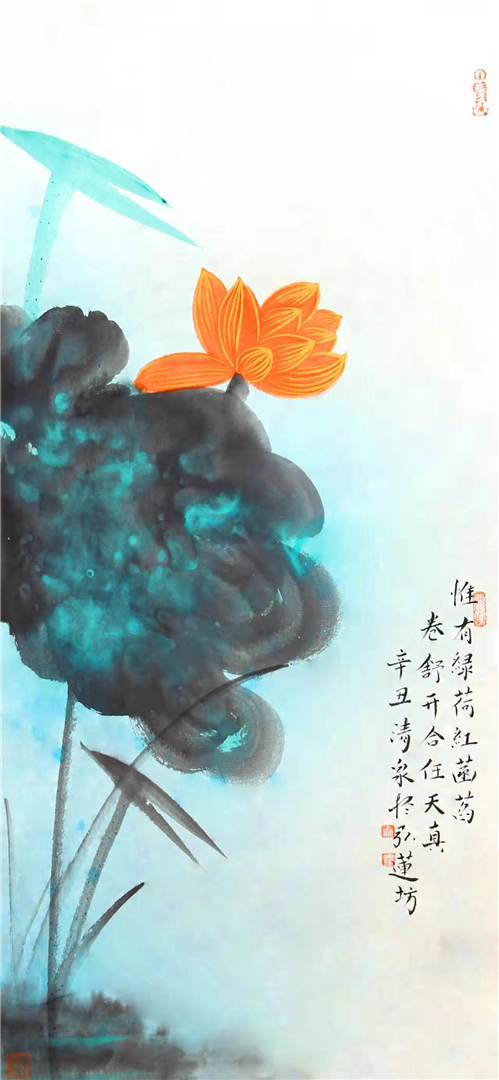 惟有緑荷紅菡萏
卷舒开合任天真
辛丑清泉於弘蓮坊